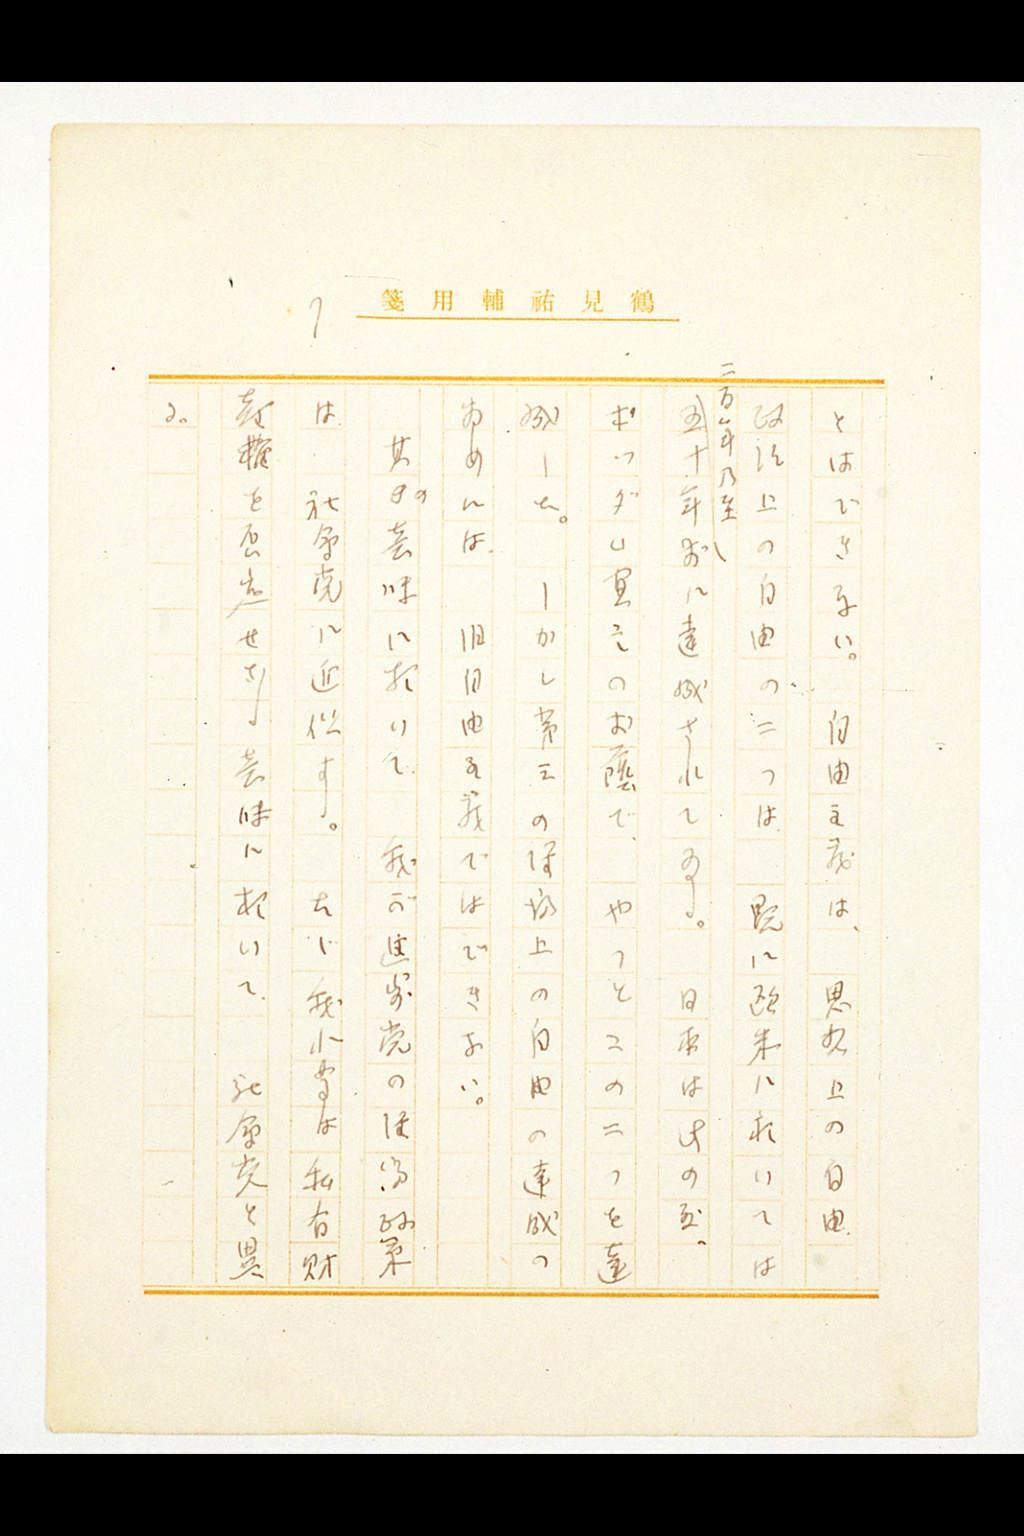 鶴見祐輔用箋
7
とはできない。 自由主義は、 思想上の自由
政治上の自由の二つは 既に欧米に於いては
二百年乃至
五十年前に達成されてゐる。 日本は此の度、
ポツダム宣言のお蔭で、 やつとこの二つを達
成した。 しかし第三の経済上の自由の達成の
ためには 旧自由主義ではできない。
其の意味に於いて 我が進歩党の経済政策
は 社会党に近似する。 たゞ我れ等は私有財
産権を認めせる意味に於いて、 社会党と異
る。